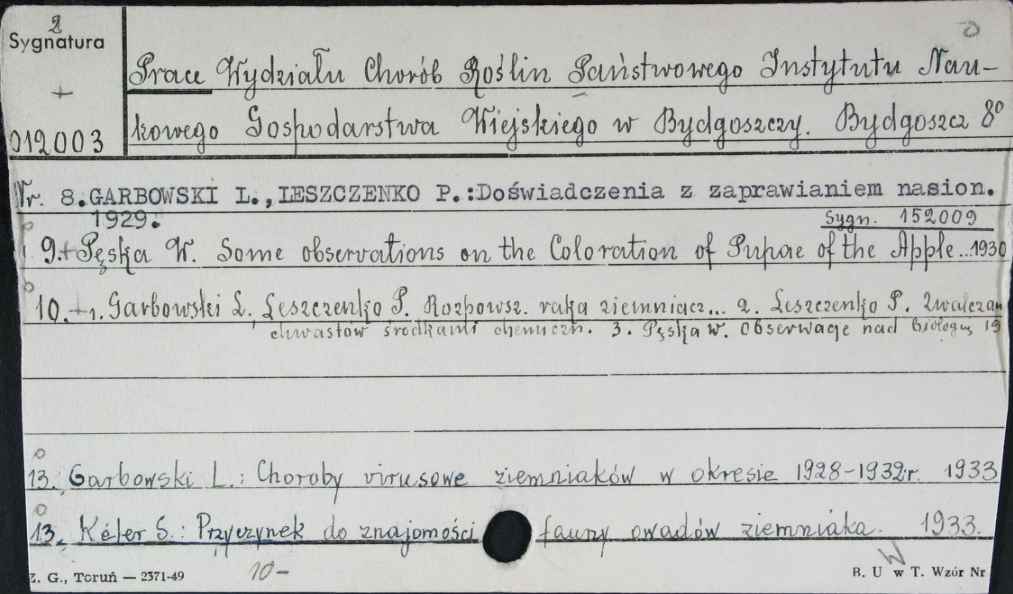 2
Sygnatura
+
012003
Prace Wydziału Chorób Roślin Państwowego Instytutu Nau-
kowego Gospodarstwa Wiejskiego w Bydgoszczy. Bydgoszcz 8º
Nr. 8.GARBOWSKI L.,LESZCZENKO P.:Doświadczenia z zaprawianiem nasion.
1929. Sygn. 152009
9.+ Pęska W. Some observations on the Coloration of Pupae of the Apple...1930
10.+1. Garbowski L. Leszczenko P. Rozpowsz. raka ziemniacz... 2. Leszczenko P. Zwalczan
chwastów środkami chemiczn. 3. Pęska W. Obserwacje nad biologią 19
13. Garbowski L.: Choroby virusowe ziemniaków w okresie 1928-1932r. 1933
13. Kéler S.: Przyczynek do znajomości fauny owadów ziemniaka. 1933.
Z. G., Toruń — 2371-49 10- B. U w T. Wzór Nr